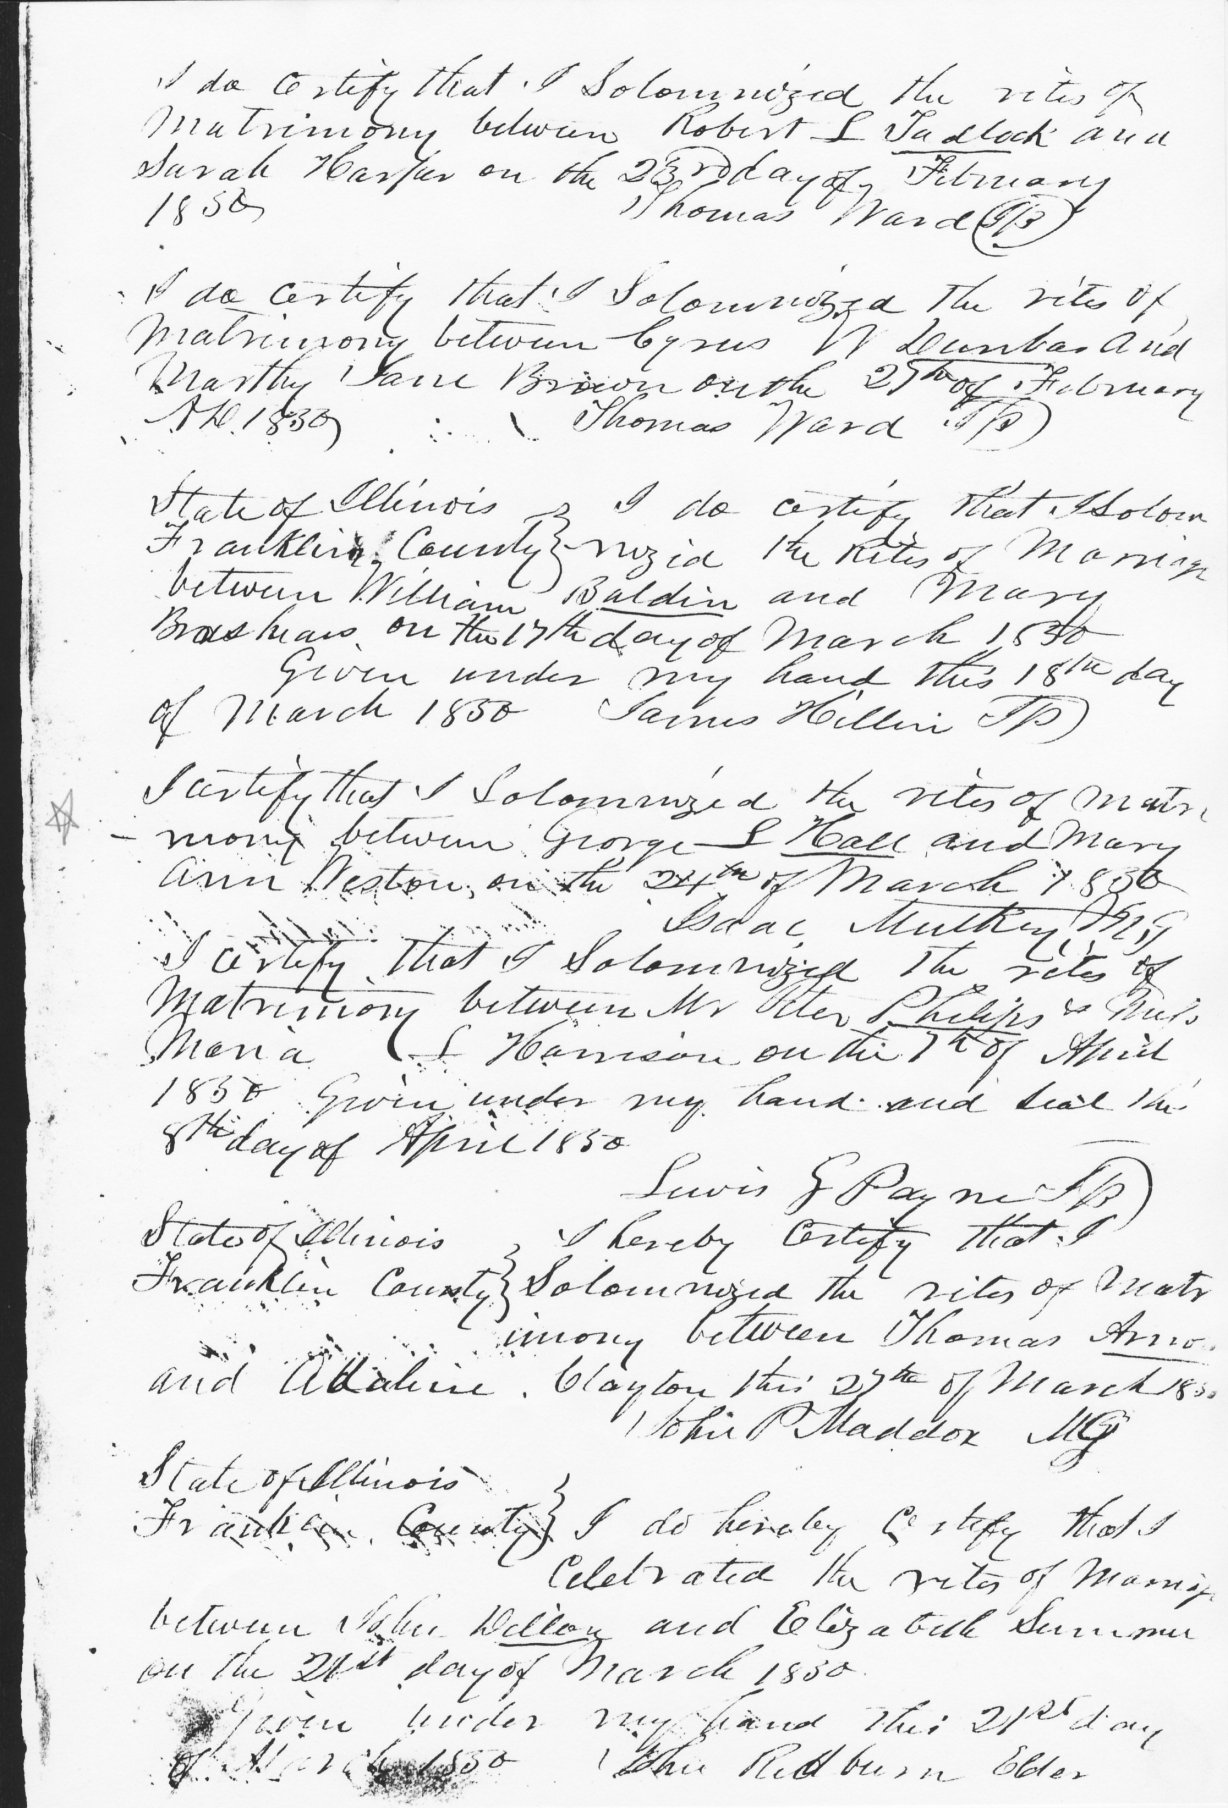 I do certify that I Solomnized the rites of
Matrimony between Robert L Tadlock and
Sarah Harper on the 23rd day of February
1850 Thomas Ward JP
I do certify that I Solomnized the rites of
Matrimony between Cyrus W Dunbar and
Marthy Jane Brown on the 27th of February
AD. 1850 Thomas Ward JP
State of Illinois } I do certify that I Solom
Franklin County } nized the Rites of Marriage
between William Baldin and Mary
Brashears on the 17th day of March 1850
Given under my hand this 18th day
of March 1850 James Hillin JP
I certify that I Solomnized the rites of Matri
- mony between George L Hall and Mary
Ann Weston, on the 24th of March 1850
Isaac Mulkey MG
I certify that I Solomnized the rites of
Matrimony between Mr Peter Philips & Miss
Maria L Harrison on the 7th of April
1850 Given under my hand and seal this
8th day of April 1850
Lewis G Payne JP
State of Illinois } I hereby Certify that I
Franklin County } Solomnized the rites of Matr
imony between Thomas Arno
and Adaline Clayton this 27th of March 1850
John P Maddox MG
State of Illinois
Franklin County } I do hereby Certify that I
Celebrated the rites of Marriage
between John Dillon and Elizabeth Summer
on the 21st day of March 1850
Given under my hand this 21st day
of March 1850 John Redburn Elder